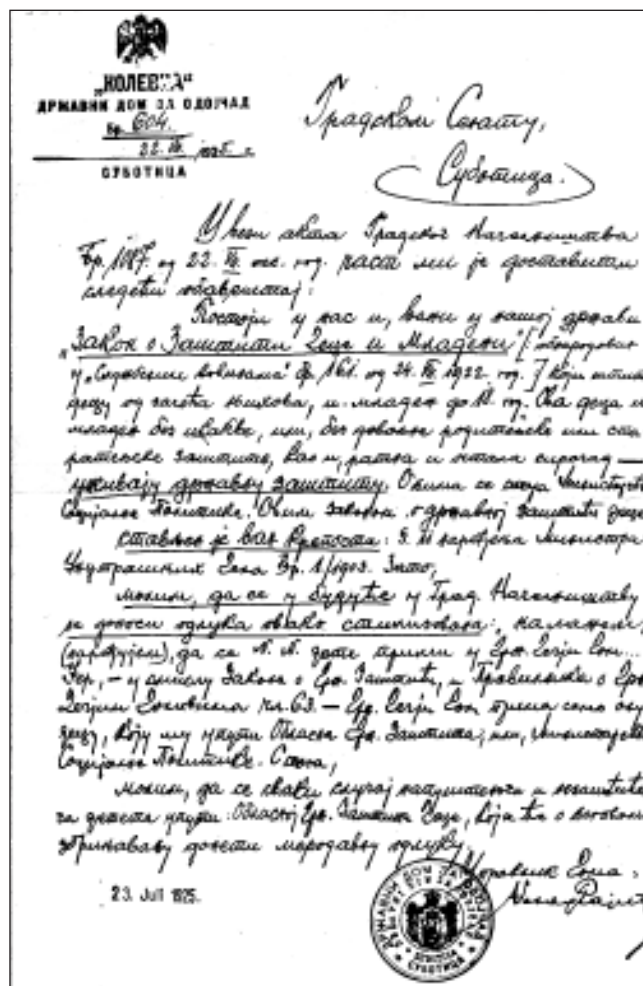 „КОЛЕВКА“
ДРЖАВНИ ДОМ ЗА ОДОЈЧАД
Бр. 604.
22. VII. 1925. г.
СУБОТИЦА
Градском Сенату,
Суботица.
У вези акта Градског Начелништва
Бр. 1087. од 22. VII. тек. год. част ми је доставити
следећи обавештај:
Постоји у нас и, важи у нашој држави
„Закон о Заштити Деце и Младежи“ [обнародован
у „Службеним новинама“ бр. 161. од 24. VII 1922. год.] који штити
децу од зачећа њихова, и младеж до 18. год. Ова деца и
младеж без икакве, или, без довољне родитељске или ста-
ратељске заштите, као и, ратна и остала сирочад —
уживају државну заштиту. О њима се стара Министарство
Социјалне Политике. Овим законом о државној заштити деце
стављена је ван крепости: наредјења Министра
Унутрашњих Дела Бр. 1/1903. Зато,
молим, да се у будуће у Град. Начелништву
не доноси одлука овако стилизована: налажем,
(наредјујем), да се Н. Н. дете прими у
Јер, — у смислу Закона о Заштити, и Правилника о
чл. 63. — прима само ону
децу, коју му упути Обласна Заштита; или, Министарство
Социјалне Политике. С тога,
молим, да се сваки случај напуштеног и незаштиће-
ног детета упути Обласној Заштити Деце, која ће о његовом
збрињавању донети меродавну одлуку.
23. Juli 1925.
ДРЖАВНИ ДОМ ЗА ОДОЈЧАД
СУБОТИЦА